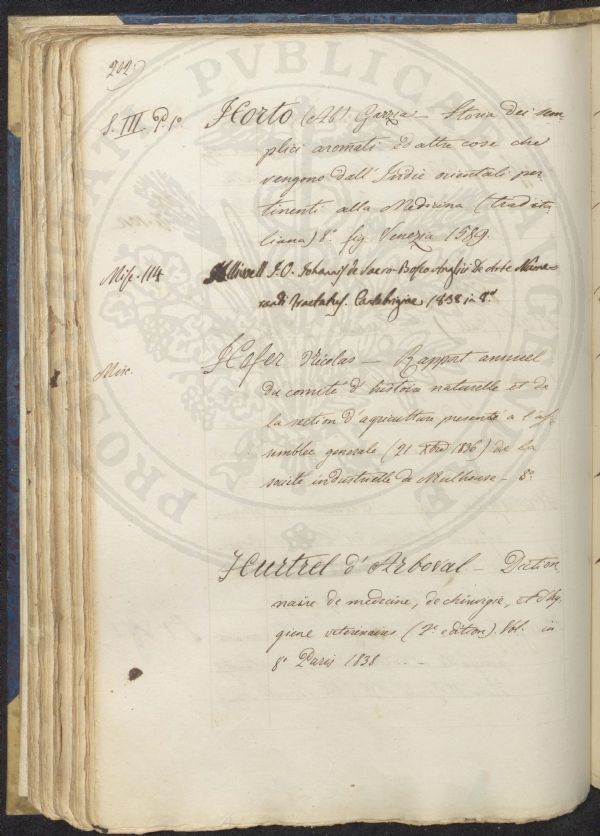 202
S. III. P. 1º. Horto (Ab) Garzia — Storia dei sem
plici aromati ed altre cose che
vengono dall'Indie orientali per
tinenti alla Medicina (trad. ita
liana) 8º fig. Venezia 1589.
Misc. 114 Alliwell J. O. Johannis de Sacro-Bosco Anglici De Arte Nume
randi Tractatus. Cantabrigiae 1838 in 8º
Misc. Hofer Nicolas — Rapport annuel
du comité d'histoire naturelle et de
la section d'agriculture presenté a l'as
semblée generale (21 Xbre 1836) de la
société industrielle de Mulhouse — 8º.
Hurtrel d'Arboval — Diction
naire de medecine, de chirurgie, et d'hy
giene veterinaires (2ᵉ edition). Vol. in
8º Paris 1838
PVBLICA